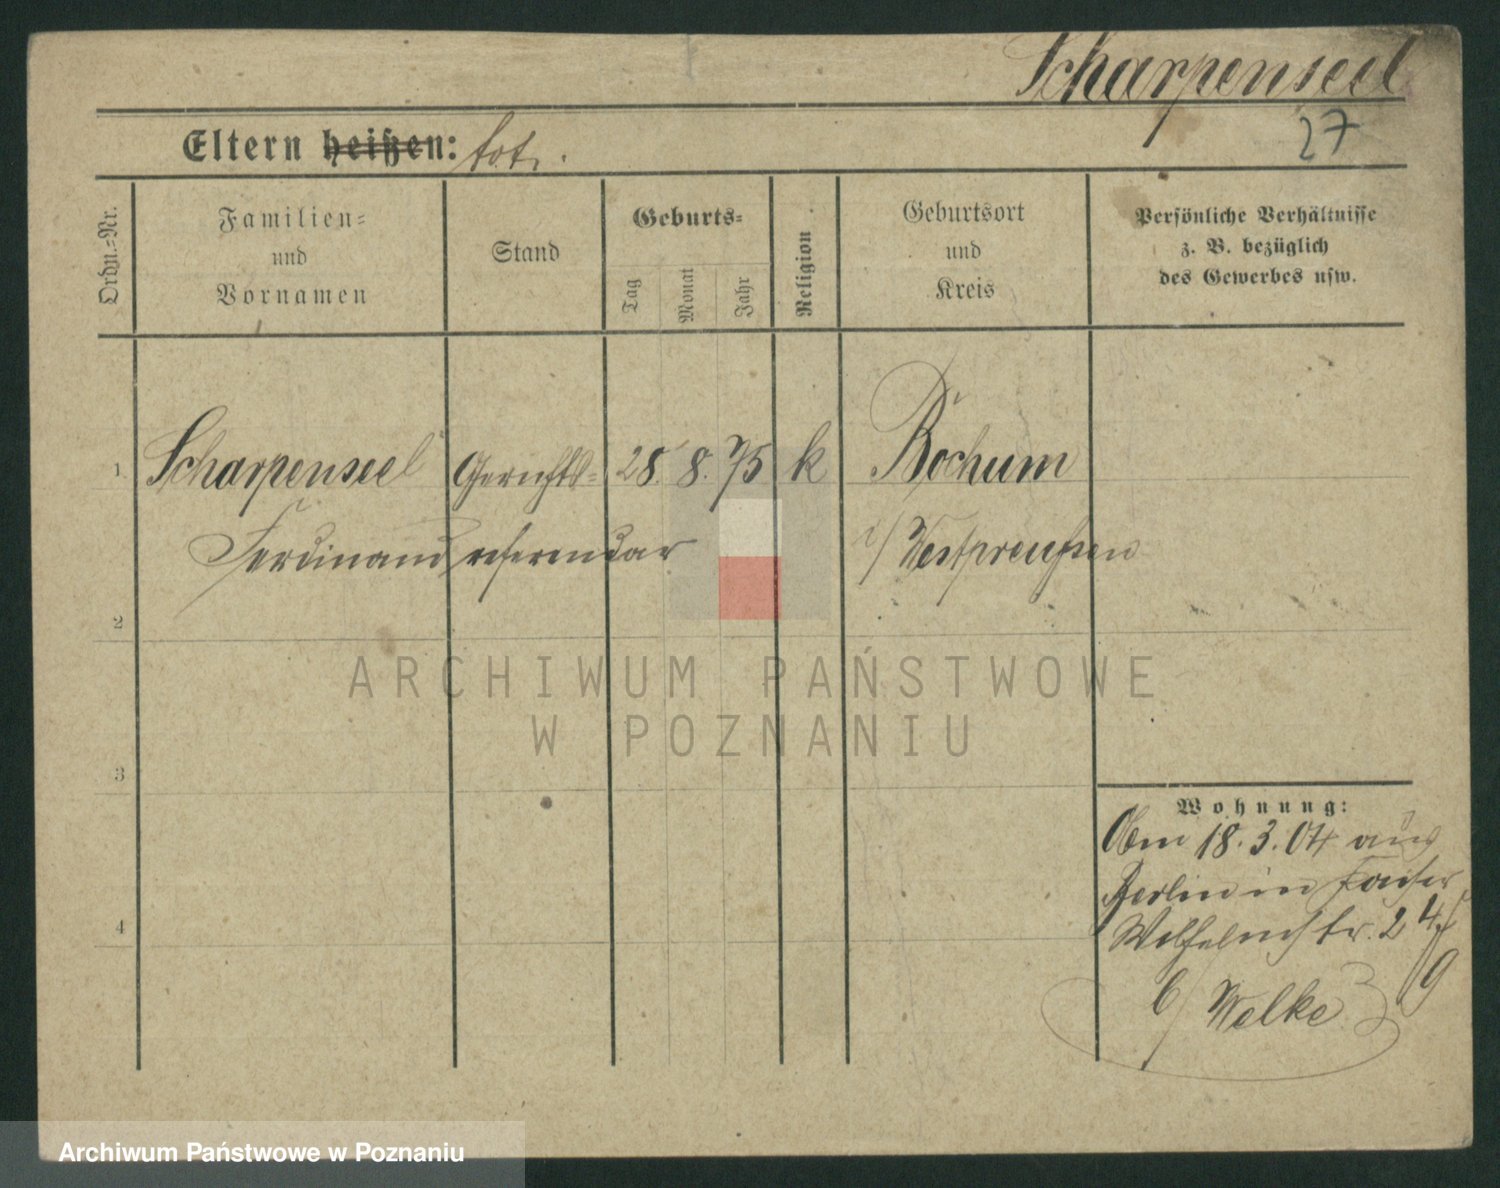 Scharpenseel
27
Eltern heißen: tot.
Ordn.=Nr.
Familien=
und
Vornamen
Stand
Geburts=
Tag
Monat
Jahr
Religion
Geburtsort
und
Kreis
Persönliche Verhältnisse
z. B. bezüglich
des Gewerbes usw.
1 Scharpenseel Gerichts= 28. 8. 75 k Bochum
Ferdinand referendar i/ Westpreußen
2
ARCHIWUM PAŃSTWOWE
W POZNANIU
3
Wohnung:
Am 18. 3. 04 aus
Berlin in Kaiser
4
Wilhelmstr. 24
b/ Welke 9
Archiwum Państwowe w Poznaniu